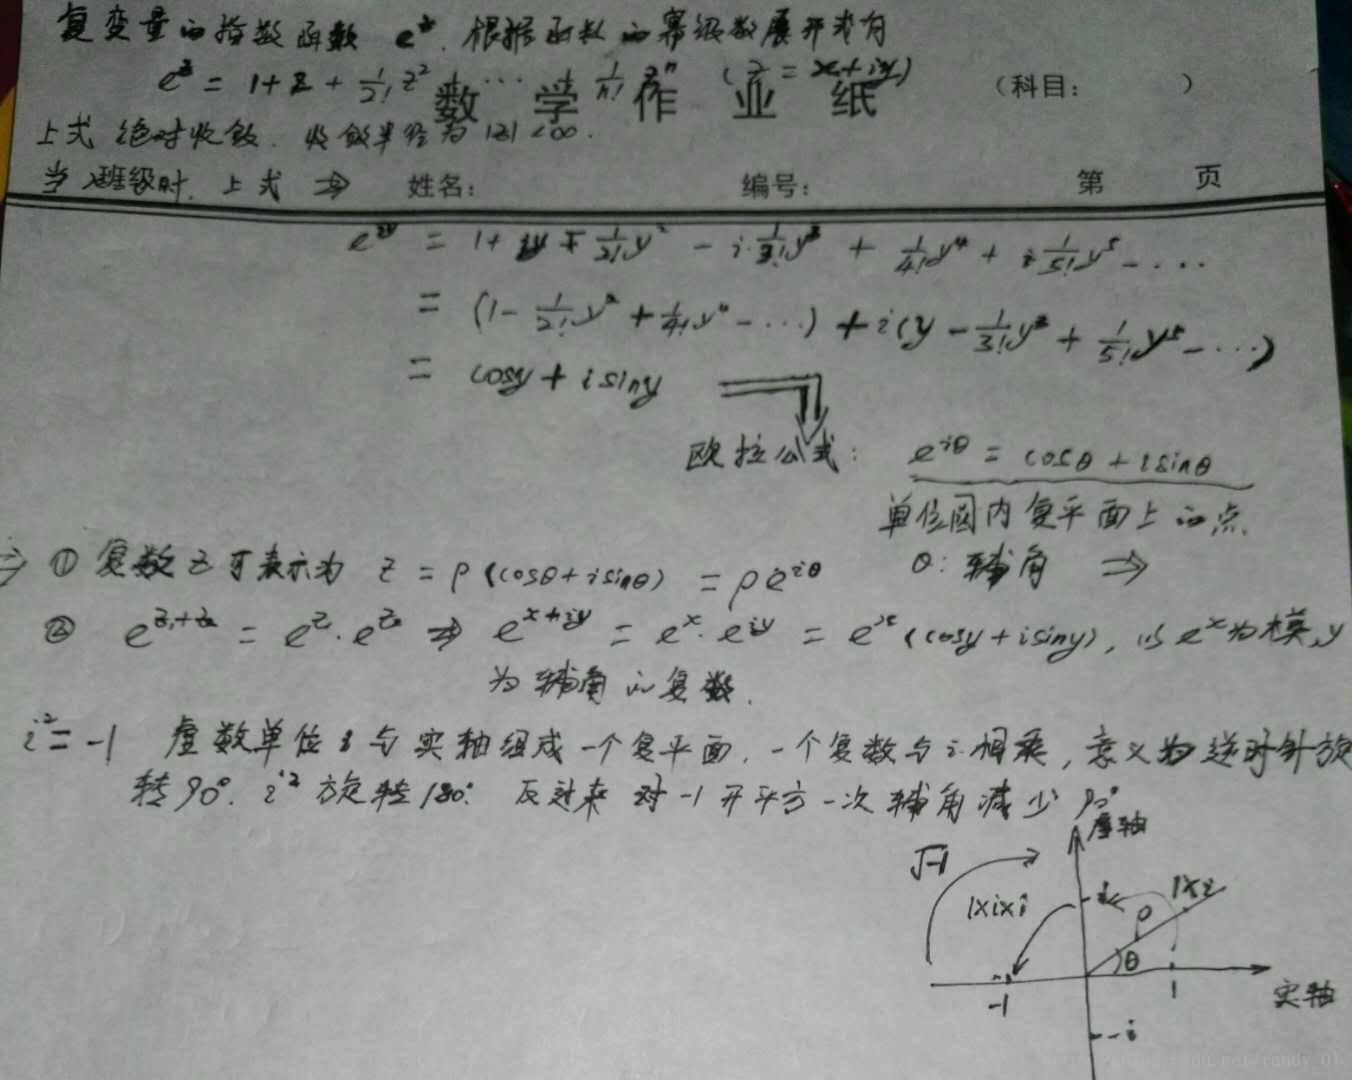 复变量的指数函数 e^z. 根据函数的幂级数展开式有
e^z = 1+z+\frac{1}{2!}z^2+…+\frac{1}{n!}z^n (z=x+iy)
数学作业纸 (科目: )
上式绝对收敛. 收敛半径为|z|<∞.
当 时. 上式 ⇒
班级 姓名: 编号: 第 页
e^{iy} = 1+iy-\frac{1}{2!}y^2 - i\frac{1}{3!}y^3 + \frac{1}{4!}y^4 + i\frac{1}{5!}y^5 - ....
= (1-\frac{1}{2!}y^2+\frac{1}{4!}y^4-...) + i(y-\frac{1}{3!}y^3+\frac{1}{5!}y^5-...)
= cosy + isiny
欧拉公式: e^{iθ} = cosθ + isinθ
单位圆内复平面上的点.
θ: 辅角 ⇒
⇒ ① 复数z可表示为 z = ρ(cosθ+isinθ) = ρe^{iθ}
② e^{z_1+z_2} = e^{z_1}·e^{z_2} ⇒ e^{x+iy} = e^x·e^{iy} = e^x(cosy+isiny), 以e^x为模,y
为辅角的复数.
i^2=-1 虚数单位i与实轴组成一个复平面. 一个复数与i相乘, 意义为逆时针旋
转90°. i^2旋转180°. 反过来对-1开平方一次辅角减少90°
虚轴
√-1
1×i×i
i
1×i
ρ
θ
-1
1
实轴
-i
https://blog.csdn.net/randy_01